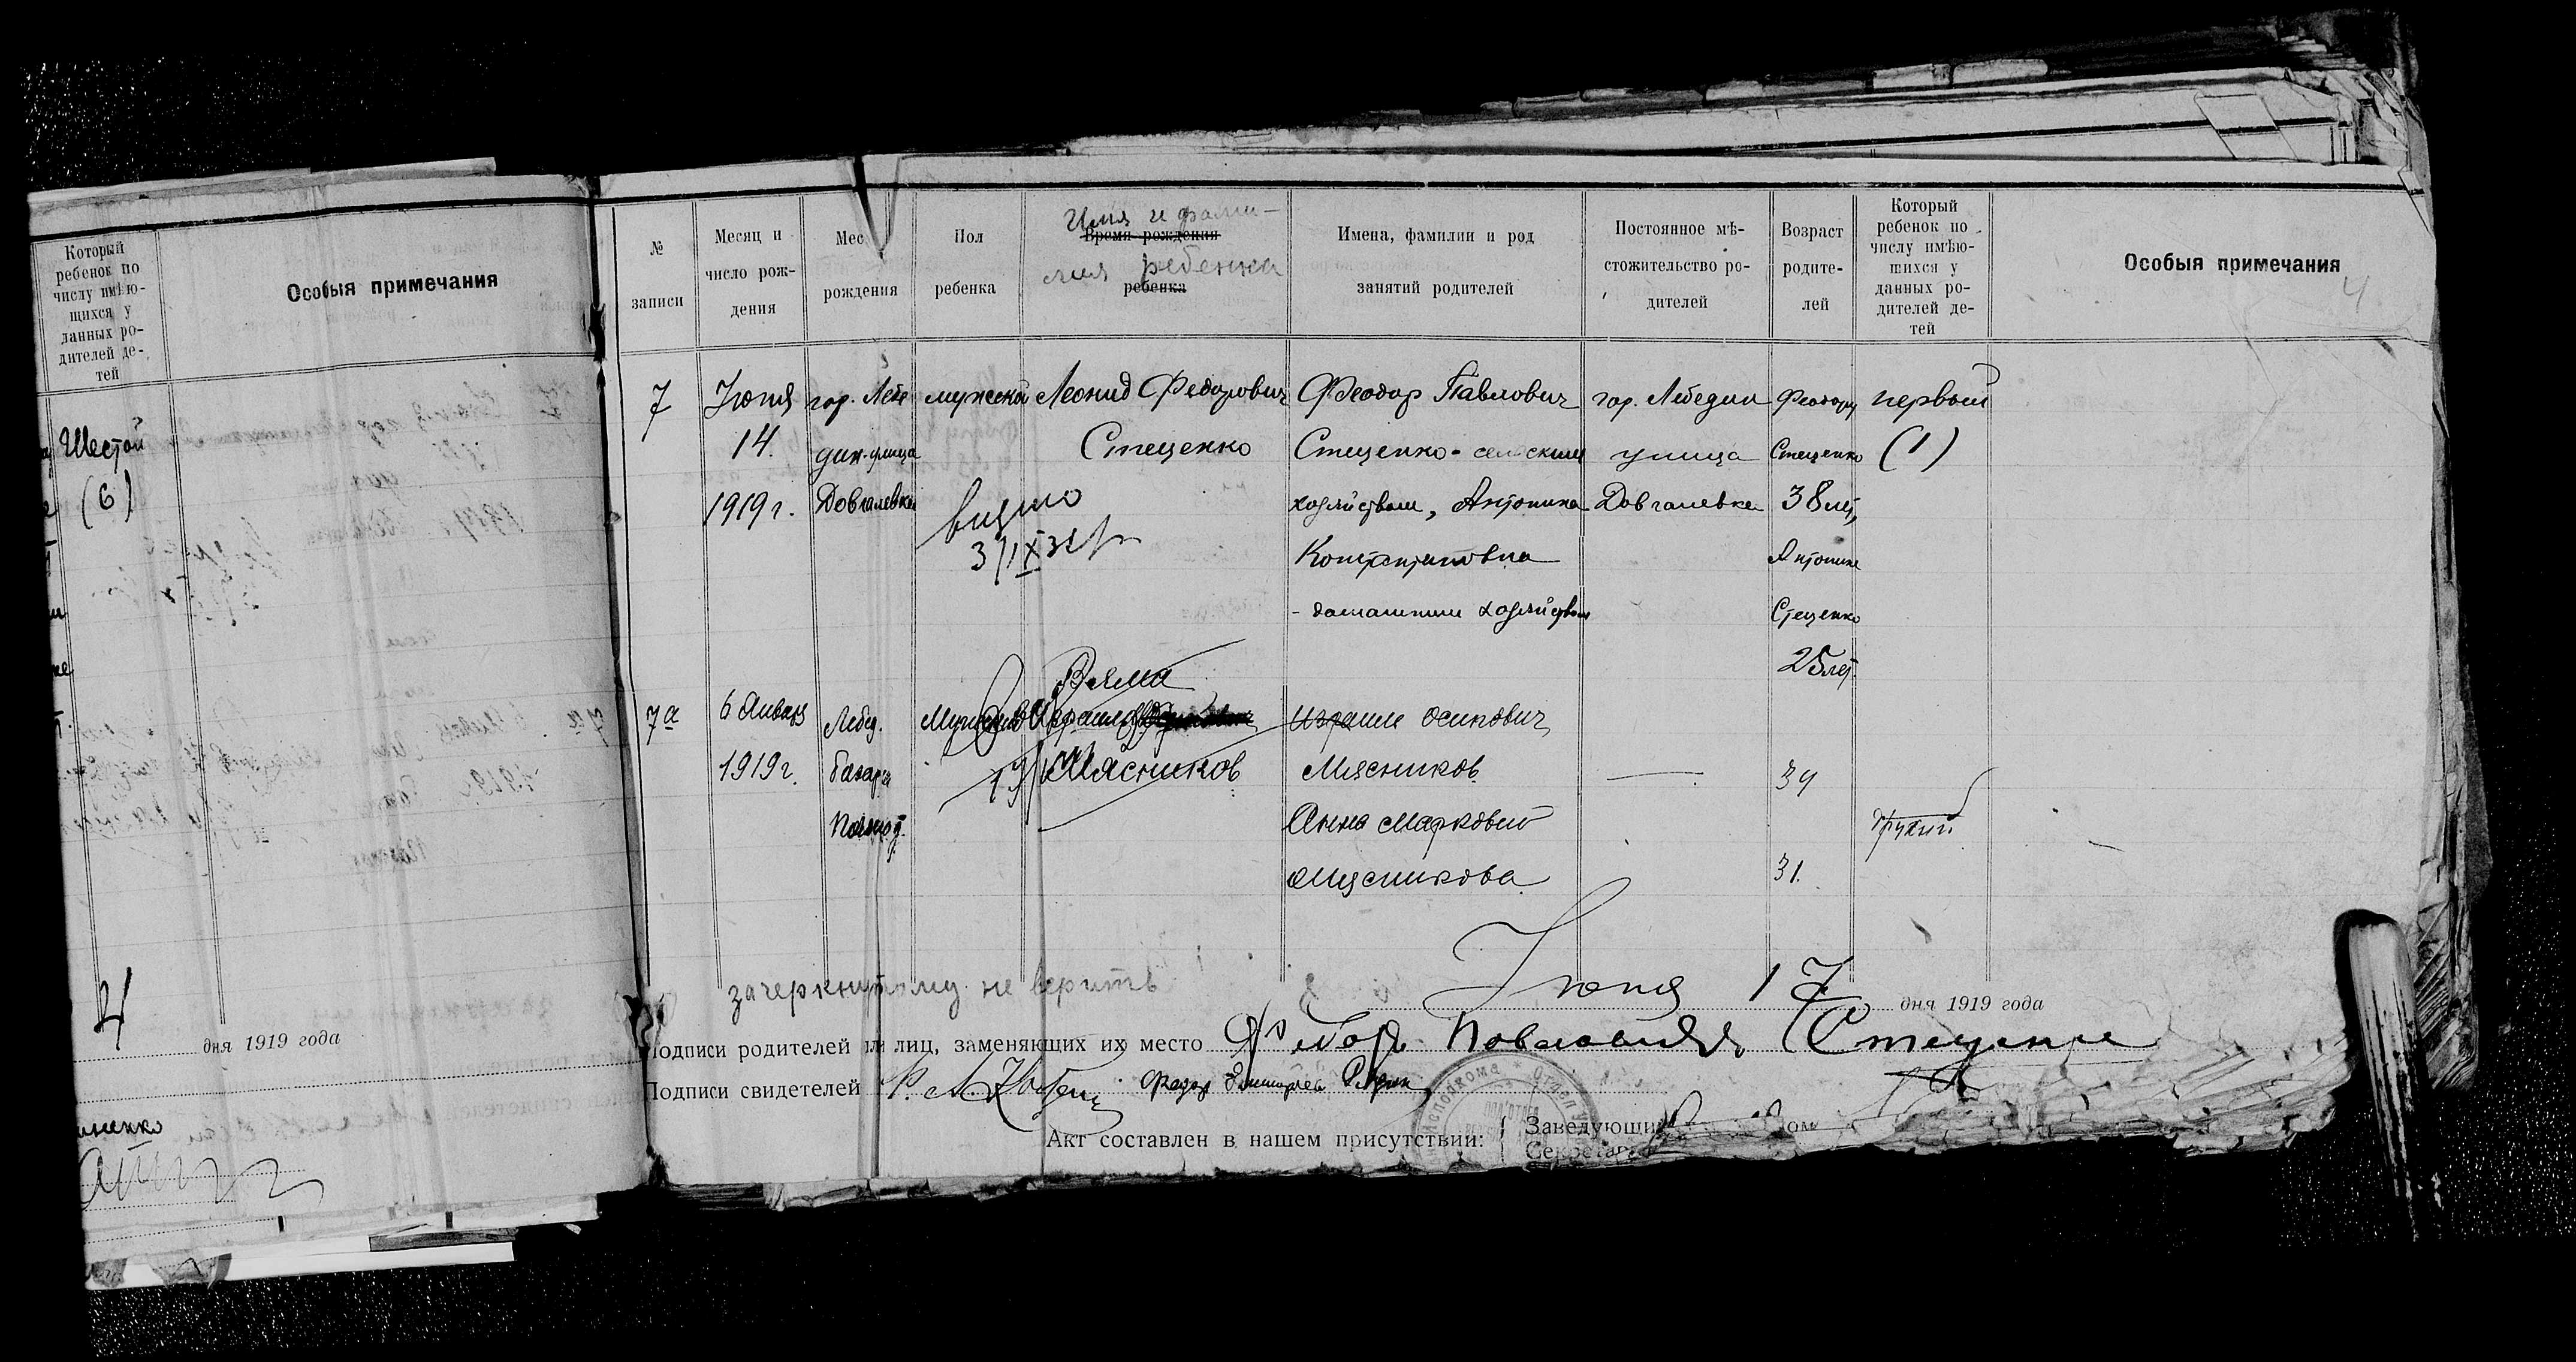 Который
ребенок по
числу имѣю-
щихся у
данных ро-
дителей де-
тей
Особыя примечания
Шестой
(6)
4
дня 1919 года
№
записи
Месяц и
число рож-
дения
Мес
рождения
Пол
ребенка
Имя и фами-
Время рождения
лия ребенка
ребенка
Имена, фамилии и род
занятий родителей
Постоянное мѣ-
стожительство ро-
дителей
Возраст
родите-
лей
Который
ребенок по
числу имѣю-
щихся у
данных ро-
дителей де-
тей
Особыя примечания
4
7
Июня
14.
1919 г.
гор. Лебе
дин. улица
Довгалевка
мужской
Леонид Федорович
Стеценко
Феодор Павлович
Стеценко - сельским
хозяйством, Антонина
Константиновна
- домашним хозяйством
гор. Лебедин
улица
Довгалевка
Феодору
Стеценко
38 лет,
Антонине
Стеценко
25 лет.
первый
(1)
7а
6 Января
1919 г.
Лебед.
базарн
Вяма
Мясников
Израиль Осипович
Мясников
Анна
Мясникова
34
31.
зачеркнутому не верить
Июня 17 дня 1919 года
Подписи родителей или лиц, заменяющих их место Стеценко
Подписи свидетелей
Акт составлен в нашем присутствии:
Заведующий
Секретарь